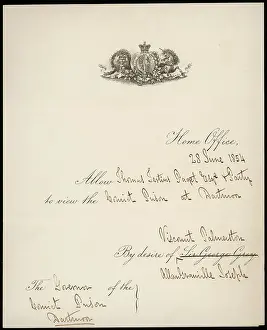 Home Office,
28 June 1854
Allow Thomas Tertius Paget Esqr & Party
to view the Convict Prison at Dartmoor
Viscount Palmerston
By desire of Sir George Grey
The Governor of the
Convict Prison
Dartmoor